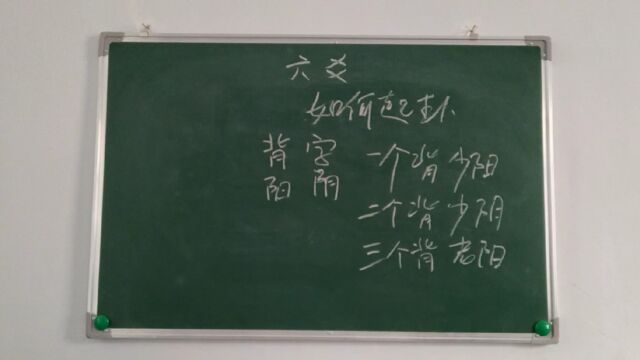 六爻
如何起卦
背 字 一个背 少阳
阳 阴
二个背 少阴
三个背 老阳